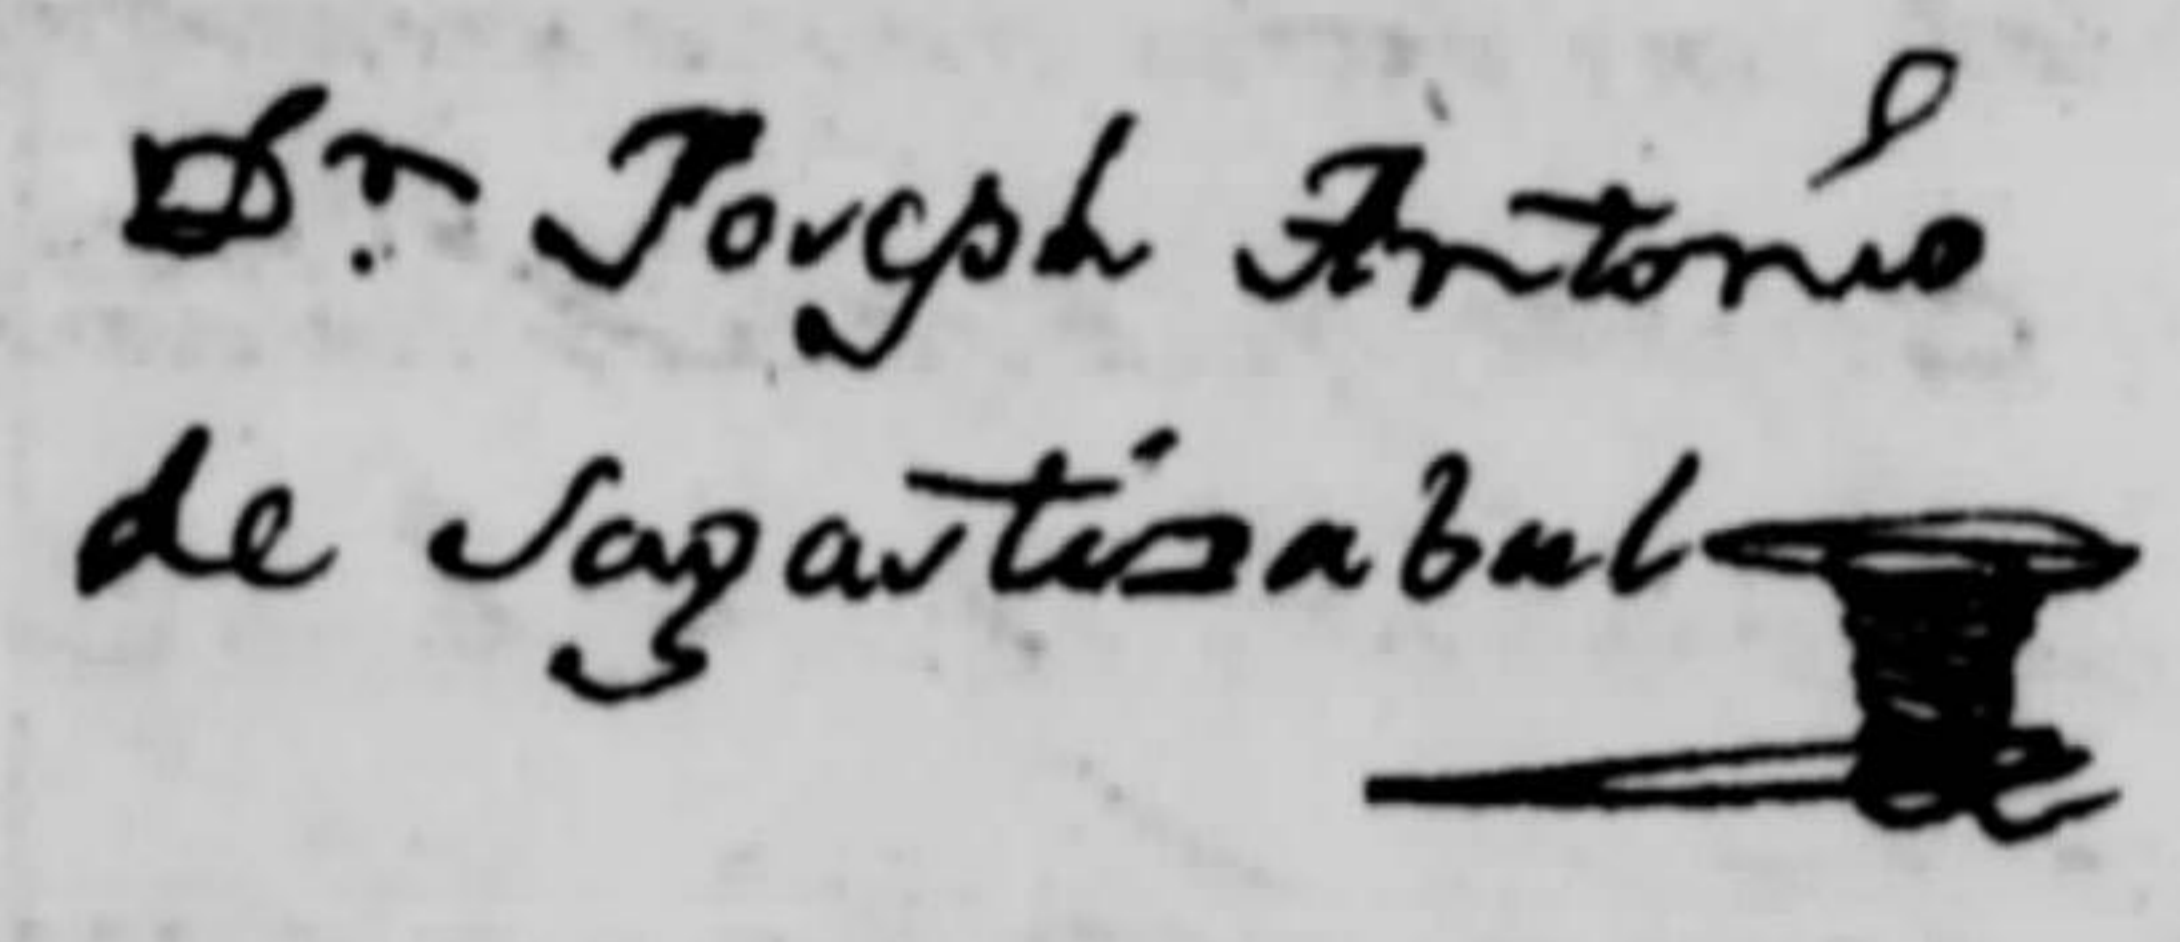 Dr. Joseph Antonio
de Sagartizabal